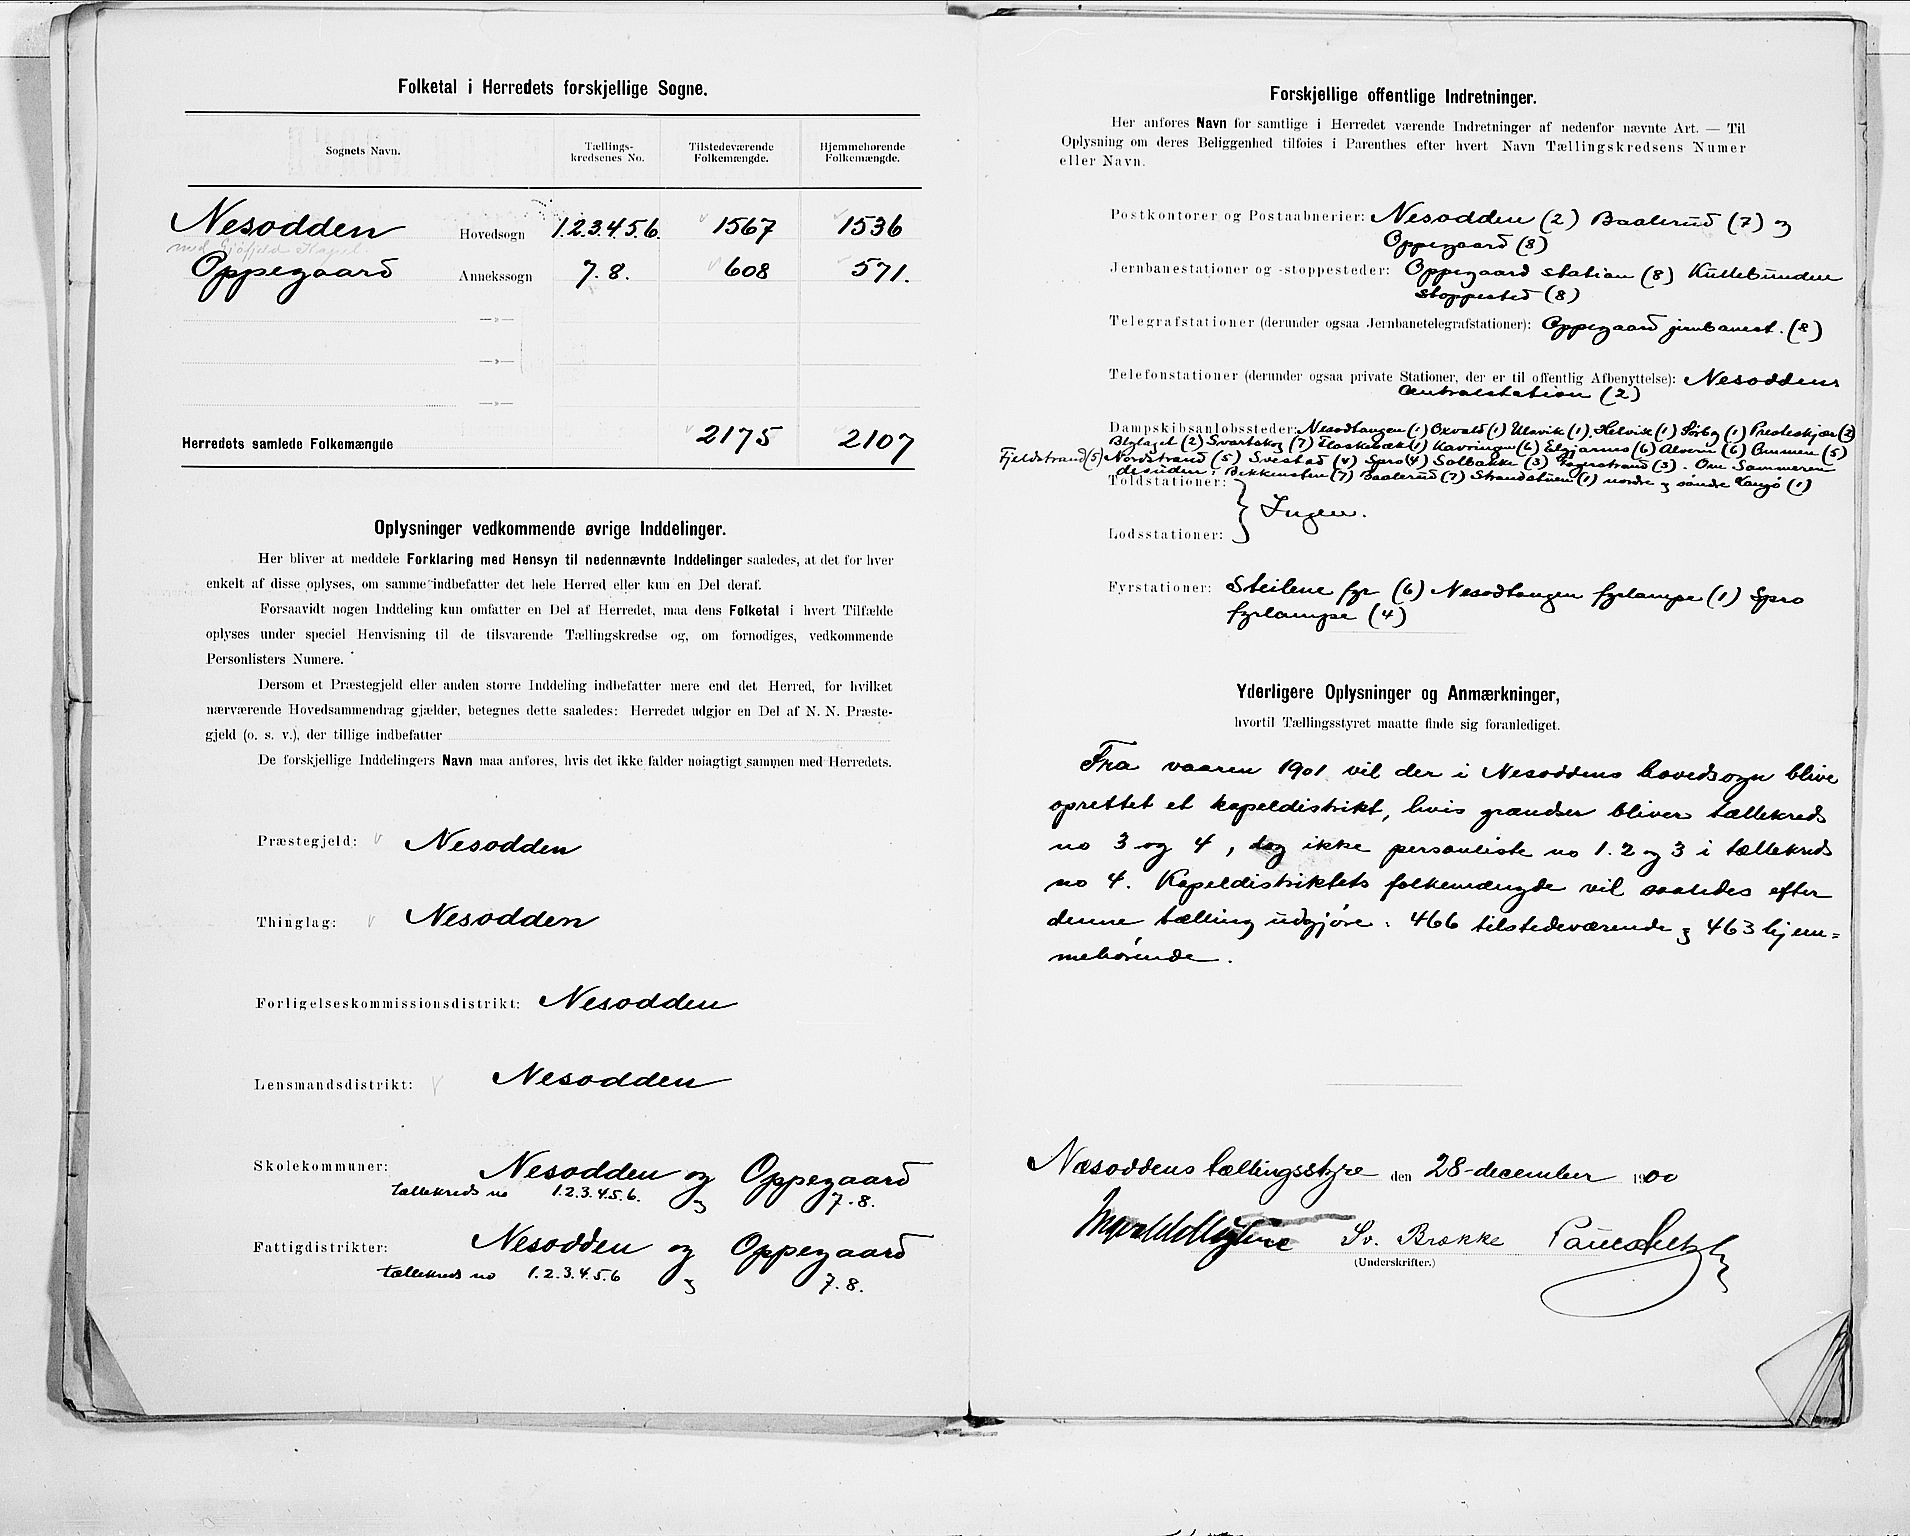 Folketal i Herredets forskjellige Sogne.
Sognets Navn.
Tællings-
kredsenes No.
Tilstedeværende
Folkemængde.
Hjemmehørende
Folkemængde.
Nesodden Hovedsogn 1.2.3.4.5.6. 1567 1536
med Gjøfjeld Kapel
Oppegaard Annekssogn 7. 8. 608 571.
—»—
—»—
—»—
Herredets samlede Folkemængde 2175 2107
Oplysninger vedkommende øvrige Inddelinger.
Her bliver at meddele Forklaring med Hensyn til nedennævnte Inddelinger saaledes, at det for hver
enkelt af disse oplyses, om samme indbefatter det hele Herred eller kun en Del deraf.
Forsaavidt nogen Inddeling kun omfatter en Del af Herredet, maa dens Folketal i hvert Tilfælde
oplyses under speciel Henvisning til de tilsvarende Tællingskredse og, om fornødiges, vedkommende
Personlisters Numere.
Dersom et Præstegjeld eller anden større Inddeling indbefatter mere end det Herred, for hvilket
nærværende Hovedsammendrag gjælder, betegnes dette saaledes: Herredet udgjør en Del af N. N. Præste-
gjeld (o. s. v.), der tillige indbefatter
De forskjellige Inddelingers Navn maa anføres, hvis det ikke falder nøiagtigt sammen med Herredets.
Præstegjeld: Nesodden
Thinglag: Nesodden
Forligelseskommissionsdistrikt: Nesodden
Lensmandsdistrikt: Nesodden
Skolekommuner: Nesodden og Oppegaard
tællekreds no 1.2.3.4.5.6. og 7. 8.
Fattigdistrikter: Nesodden og Oppegaard
tællekreds no 1.2.3.4.5.6 og 7. 8.
Forskjellige offentlige Indretninger.
Her anføres Navn for samtlige i Herredet værende Indretninger af nedenfor nævnte Art. — Til
Oplysning om deres Beliggenhed tilføies i Parenthes efter hvert Navn Tællingskredsens Numer
eller Navn.
Postkontorer og Postaabnerier: Nesodden (2) Baalerud (7) og
Oppegaard (8)
Jernbanestationer og -stoppesteder: Oppegaard station (8) Kullebunden
stoppested (8)
Telegrafstationer (derunder ogsaa Jernbanetelegrafstationer): Oppegaard jernbanest. (8)
Telefonstationer (derunder ogsaa private Stationer, der er til offentlig Afbenyttelse): Nesoddens
centralstation (2)
Dampskibsanløbssteder: Nesodtangen (1) Oxvald (1) Ulsvik (1). Helvik (1) Sørby (1) Presteskjær (2)
Blylaget (2) Svartskog (7) Flaskebæk (1) Kavringen (6) Elgjarnes (6) Alvern (6) Ommen (5)
Fjeldstrand (5) Nordstrand (5) Svestad (4) Spro (4) Solbakke (3) Fagerstrand (3). Om Sommeren
desuden: Bekkensten (7) Baalerud (7) Strandstuen (1) nordre og søndre Langø (1)
Toldstationer:
Ingen.
Lodsstationer:
Fyrstationer: Steilene fyr (6) Nesodtangen fyrlampe (1) Spro
fyrlampe (4)
Yderligere Oplysninger og Anmærkninger,
hvortil Tællingsstyret maatte finde sig foranlediget.
Fra vaaren 1901 vil der i Nesoddens hovedsogn blive
oprettet et kapeldistrikt, hvis grændser bliver tællekreds
no 3 og 4, dog ikke personliste no 1. 2 og 3 i tællekreds
no 4. Kapeldistriktets folkemængde vil saaledes efter
denne tælling udgjøre: 466 tilstedeværende og 463 hjem=
mehørende.
Næsoddens tællingsstyre den 28-december 1900
Sv. Brække
(Underskrifter.)